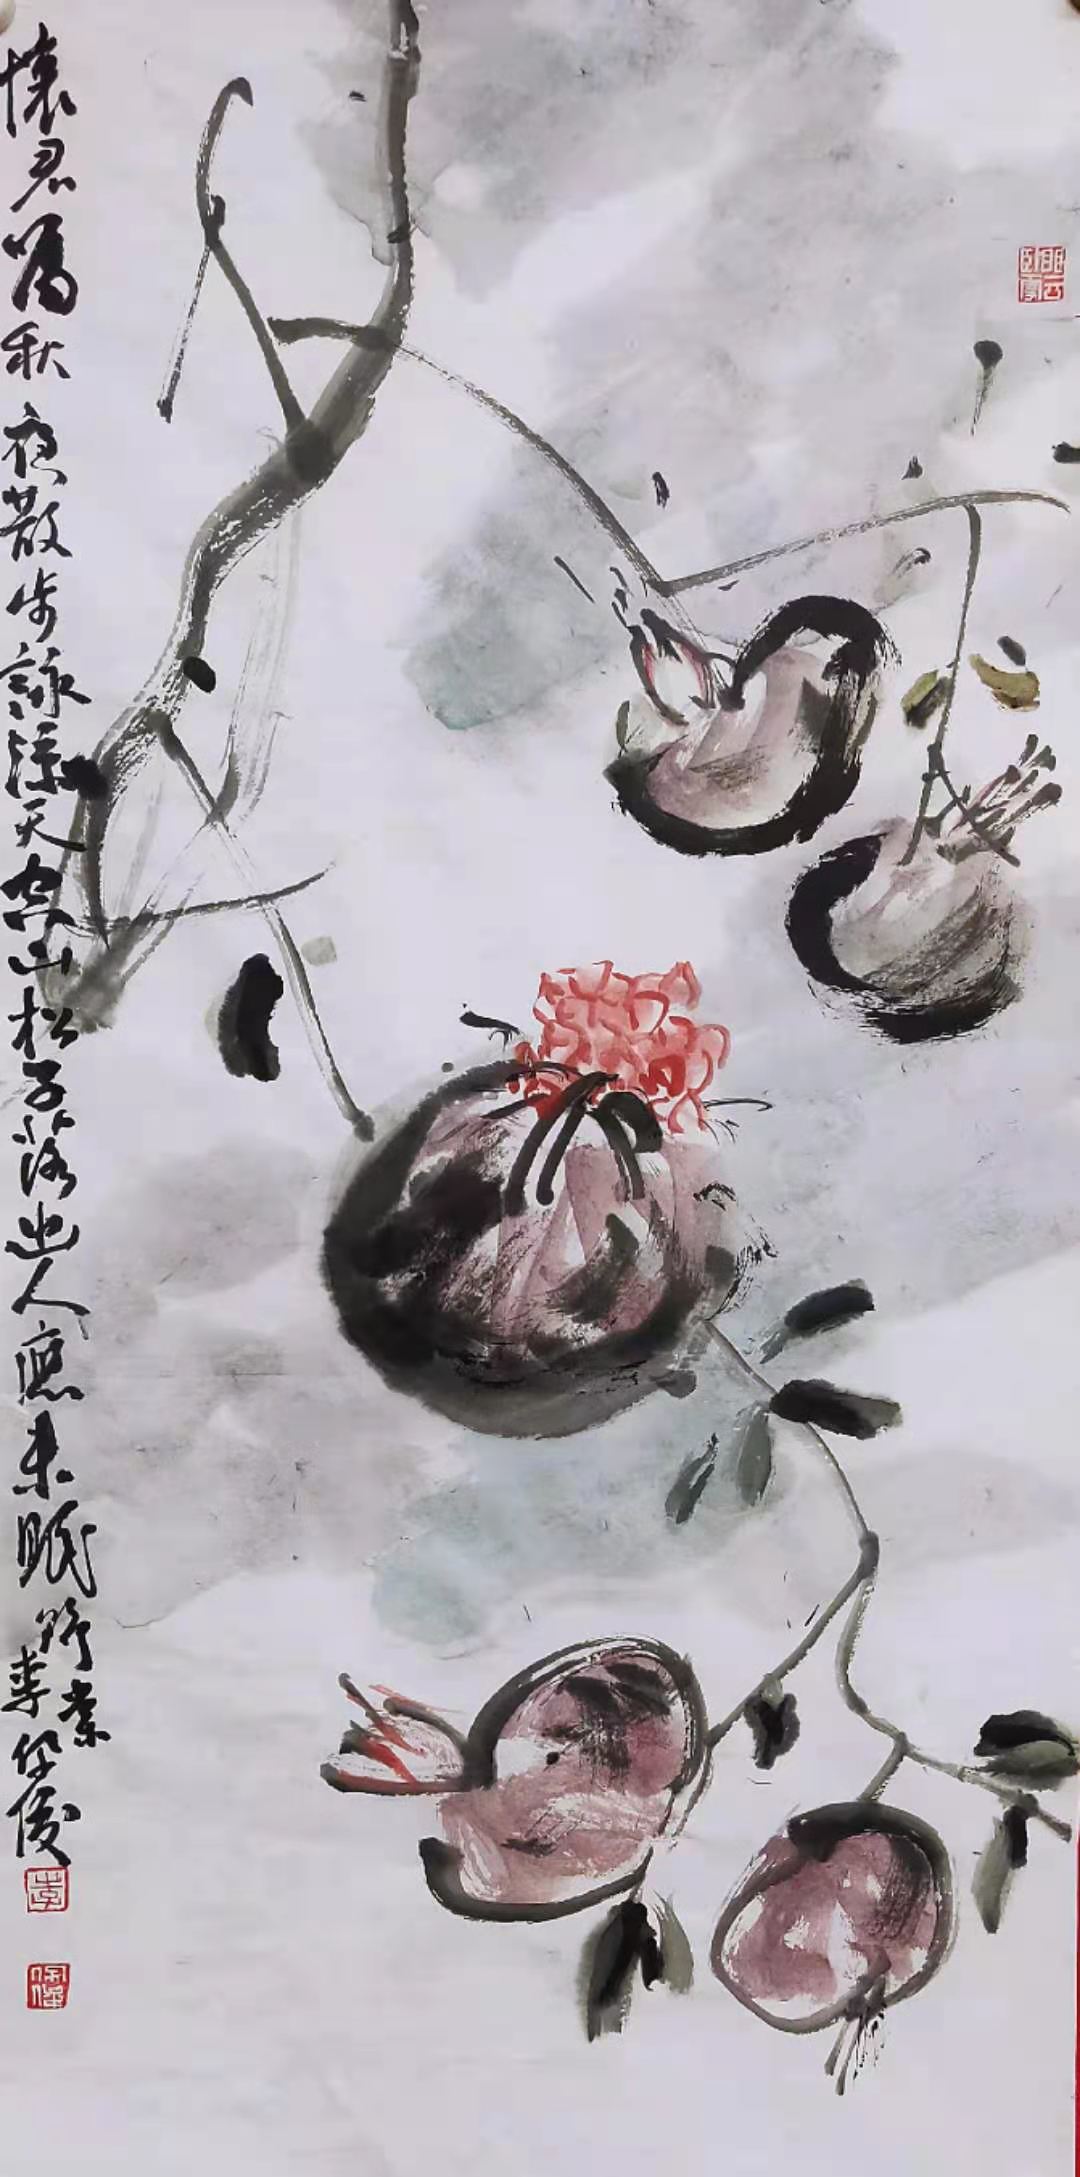 懷君屬秋夜散步詠涼天空山松子落幽人應未眠
野叟
李保俊